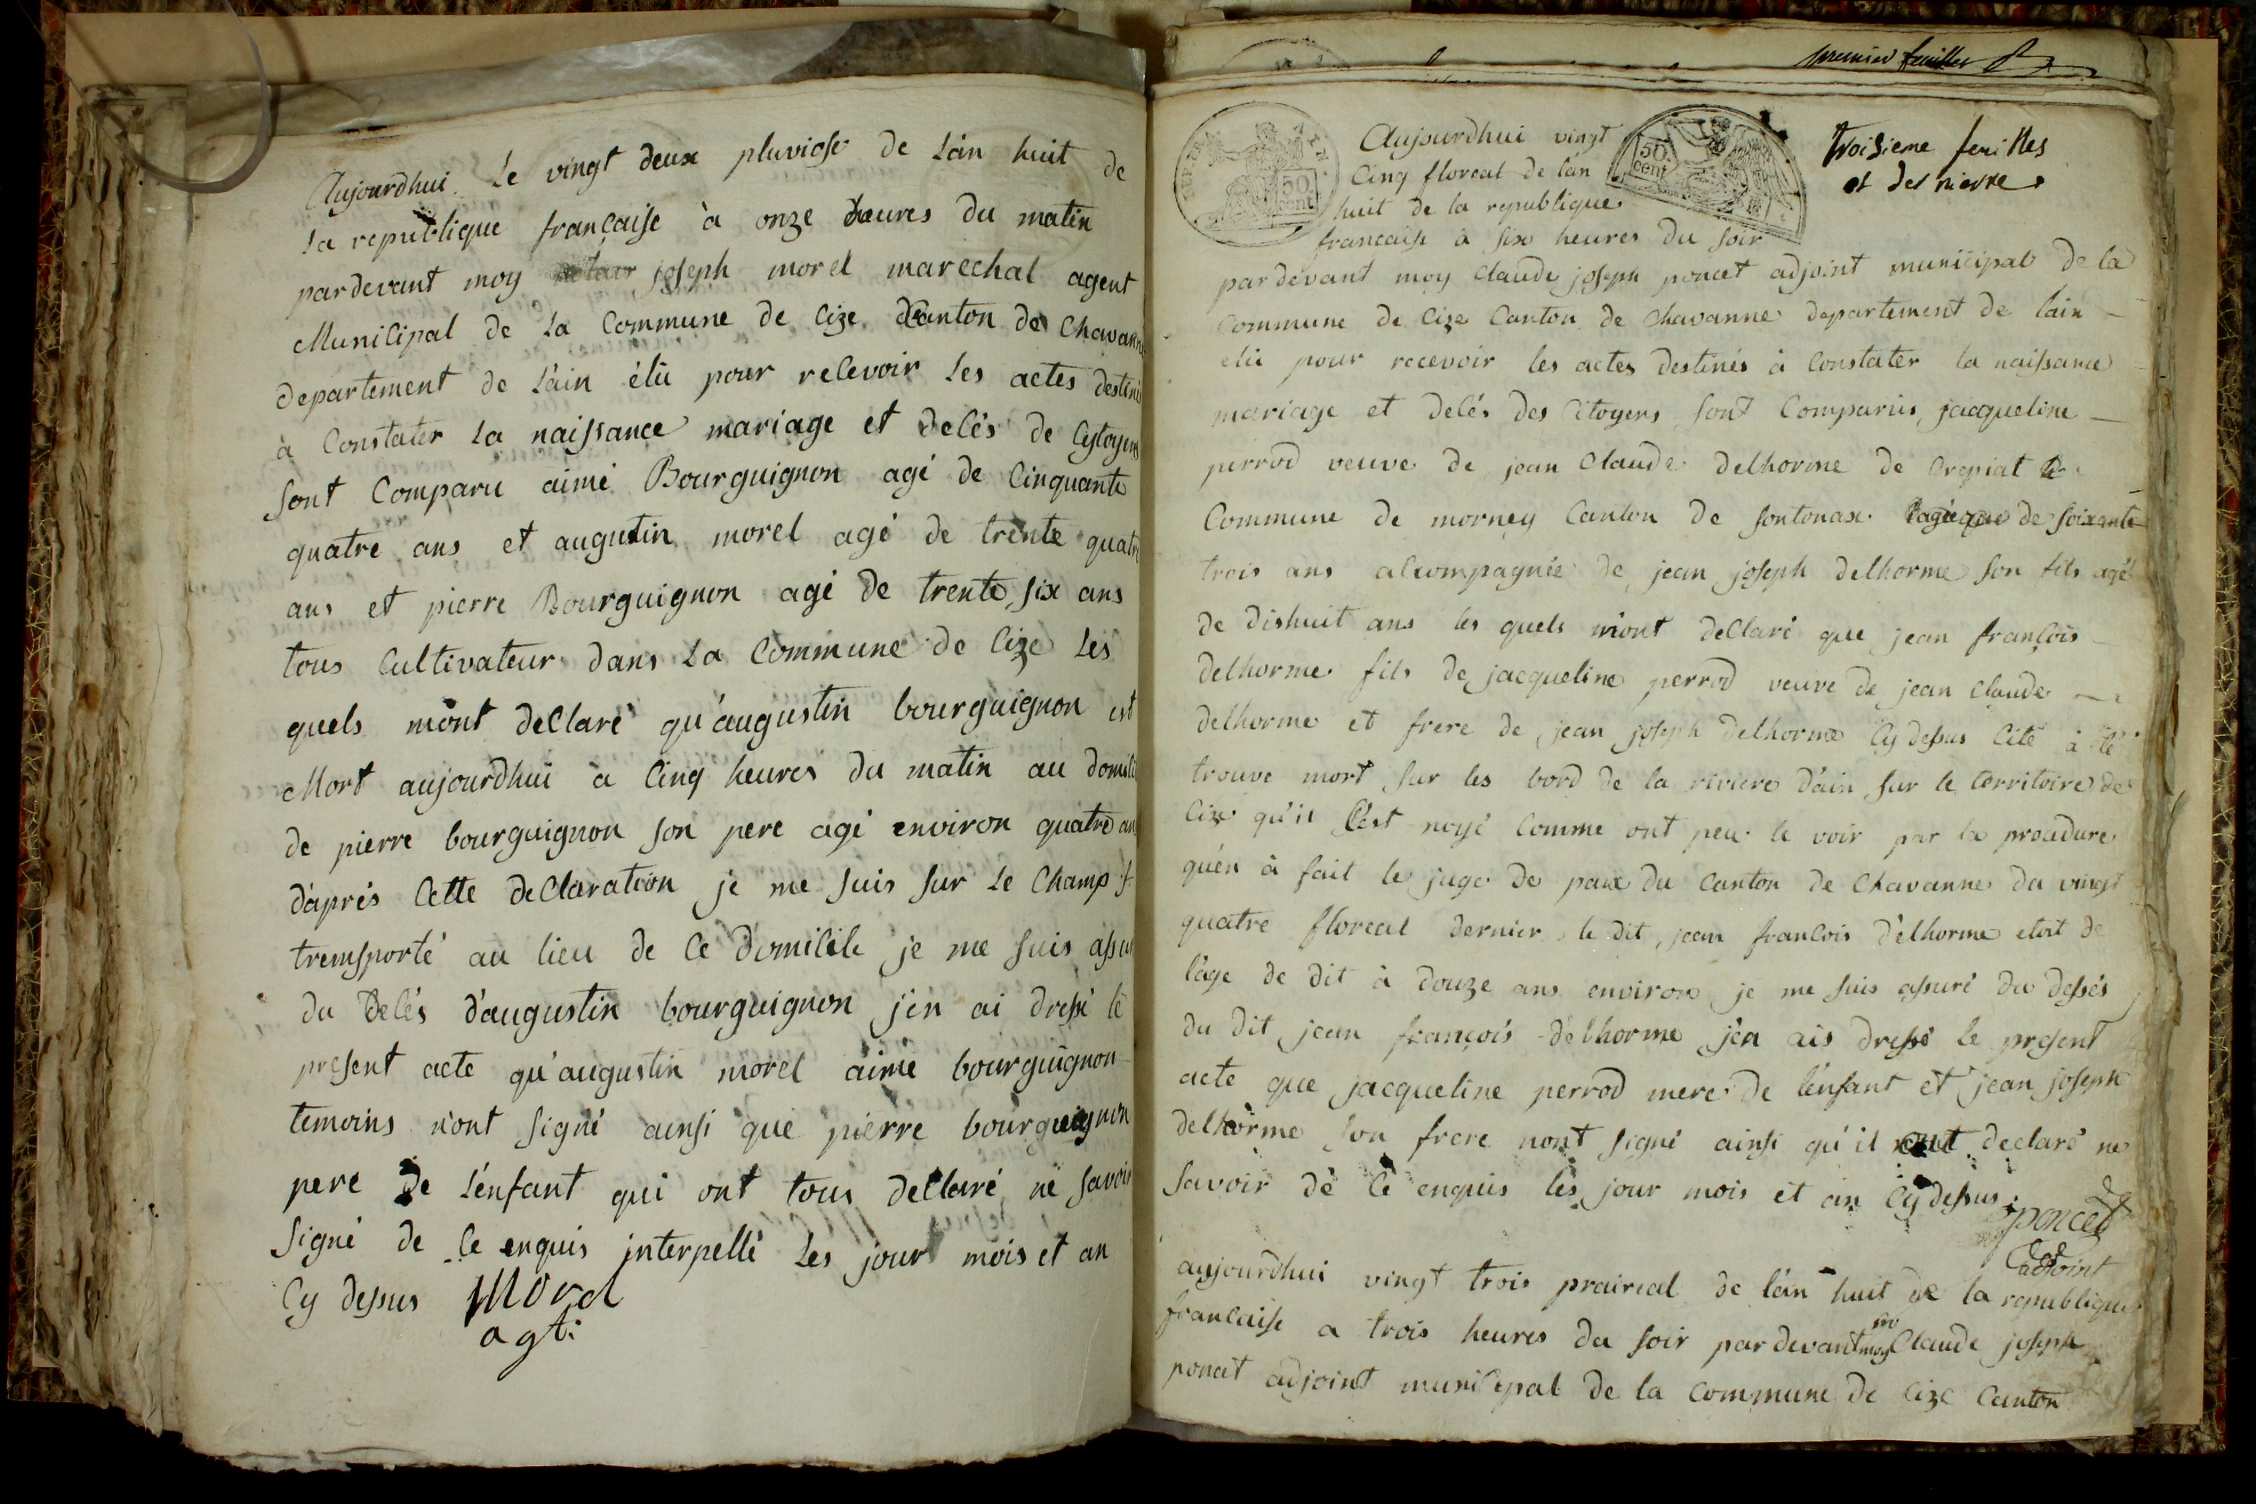 Aujourdhui Le vingt deux pluviose de L'an huit de
La republique française à onze heures du matin
pardevant moy joseph morel marechal agent
Municipal de La Commune de Cize Canton de Chavanne
departement de L'ain élû pour recevoir Les actes destiné
à Constater La naissance mariage et decés de Cytoyens
sont Comparu aimé Bourguignon agé de Cinquante
quatre ans et augustin morel agé de trente quatre
ans et pierre Bourguignon agé de trente six ans
tous Cultivateur dans La Commune de Cize Les
quels m'ont declaré qu'augustin bourguignon est
Mort aujourdhui à Cinq heures du matin au domicile
de pierre bourguignon son pere agé environ quatre ans
d'aprés Cette declaration je me suis sur Le Champ
tremsporté au lieu de Ce domicile je me suis assuré
du Decés d'augustin bourguignon j'en ai dressé le
present acte qu'augustin morel aimé bourguignon
temoins n'ont signé ainsi que pierre bourguignon
pere de L'enfant qui ont tous declaré ne savoir
signé de Ce enquis interpellé Les jour mois et an
Cy dessus Morel
agt:
premier feuillet
troisieme feuilles
et dernierre
50 cent
50 cent
Aujourdhui vingt
Cinq floreal de l'an
huit de la republique
francaise à six heures du soir
pardevant moy Claude joseph poncet adjoint municipal de la
Commune de Cize Canton de Chavanne departement de l'ain
elû pour recevoir les actes destinés à Constater la naissance
mariage et decés des Citoyens sont Comparus jacqueline
perrod veuve de jean Claude delhorme de Crepiat
Commune de morney Canton de sontonax agée de soixante
trois ans accompagnée de jean joseph delhorme son fils agé
de dishuit ans les quels m'ont declaré que jean francois
delhorme fils de jacqueline perrod veuve de jean Claude
delhorme et frere de jean joseph delhorme Cy dessus Cité à été
trouve mort sur les bord de la riviere d'ain sur le territoire de
Cize qu'il C'est noyé comme ont peu le voir par la procedure
qu'en à fait le juge de paix du Canton de Chavanne du vingt
quatre floreal dernier le dit jean francois d'elhorme etoit de
l'age de dit à douze ans environ je me suis assuré du dessés
du dit jean françois d'elhorme j'en ais dressé le present
acte que jacqueline perrod mere de l'enfant et jean joseph
delhorme son frere n'ont signé ainsi qu'il ont declaré ne
savoir dé Ce enquis les jour mois et an Cy dessus
poncet
adjoint
aujourdhui vingt trois prairial de l'an huit de la republique
francaise a trois heures du soir pardevant moy Claude joseph
poncet adjoint municipal de la commune de Cize Canton